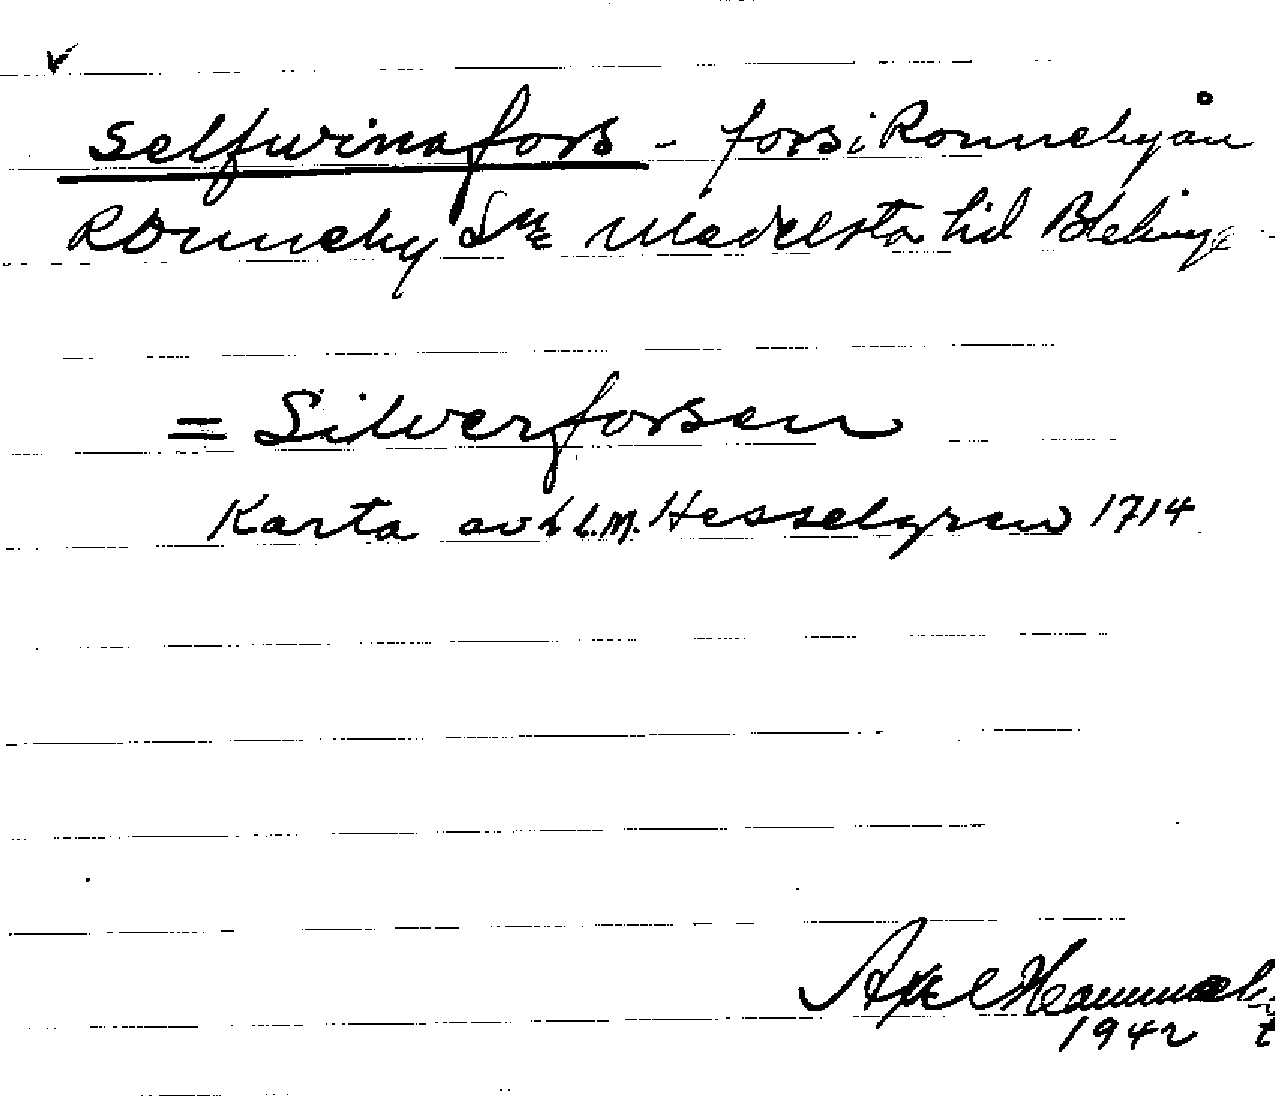 Selfwinafors - fors i Ronnebyån
Ronneby Sn Medelsta hd Blekinge
= Silverforsen
Karta av L.M. Hesselgren 1714
Axel
1942